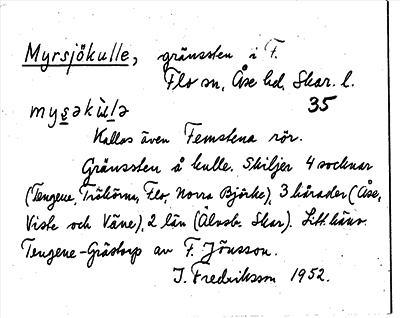 Myrsjökulle, gränssten i F.
Flo sn, Åse hd, Skar. l.
35
mysəkùlə
Kallas även Femstena rör.
Gränssten å kulle. Skiljer 4 socknar
(Tengene, Trökörna, Flo, Norra Björke), 3 härader (Åse,
Viste och Väne), 2 län (Älvsb. Skar). Litt. hänv.
Tengene-Grästorp av F. Jönsson.
J. Fredriksson 1952.